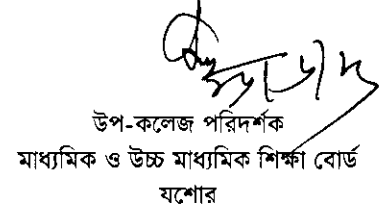 উপ-কলেজ পরিদর্শক
মাধ্যমিক ও উচ্চ মাধ্যমিক শিক্ষা বোর্ড
যশোর